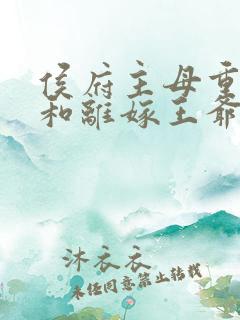 侯府主母重
和離嫁王爺
沐衣衣
未经同意禁止转载